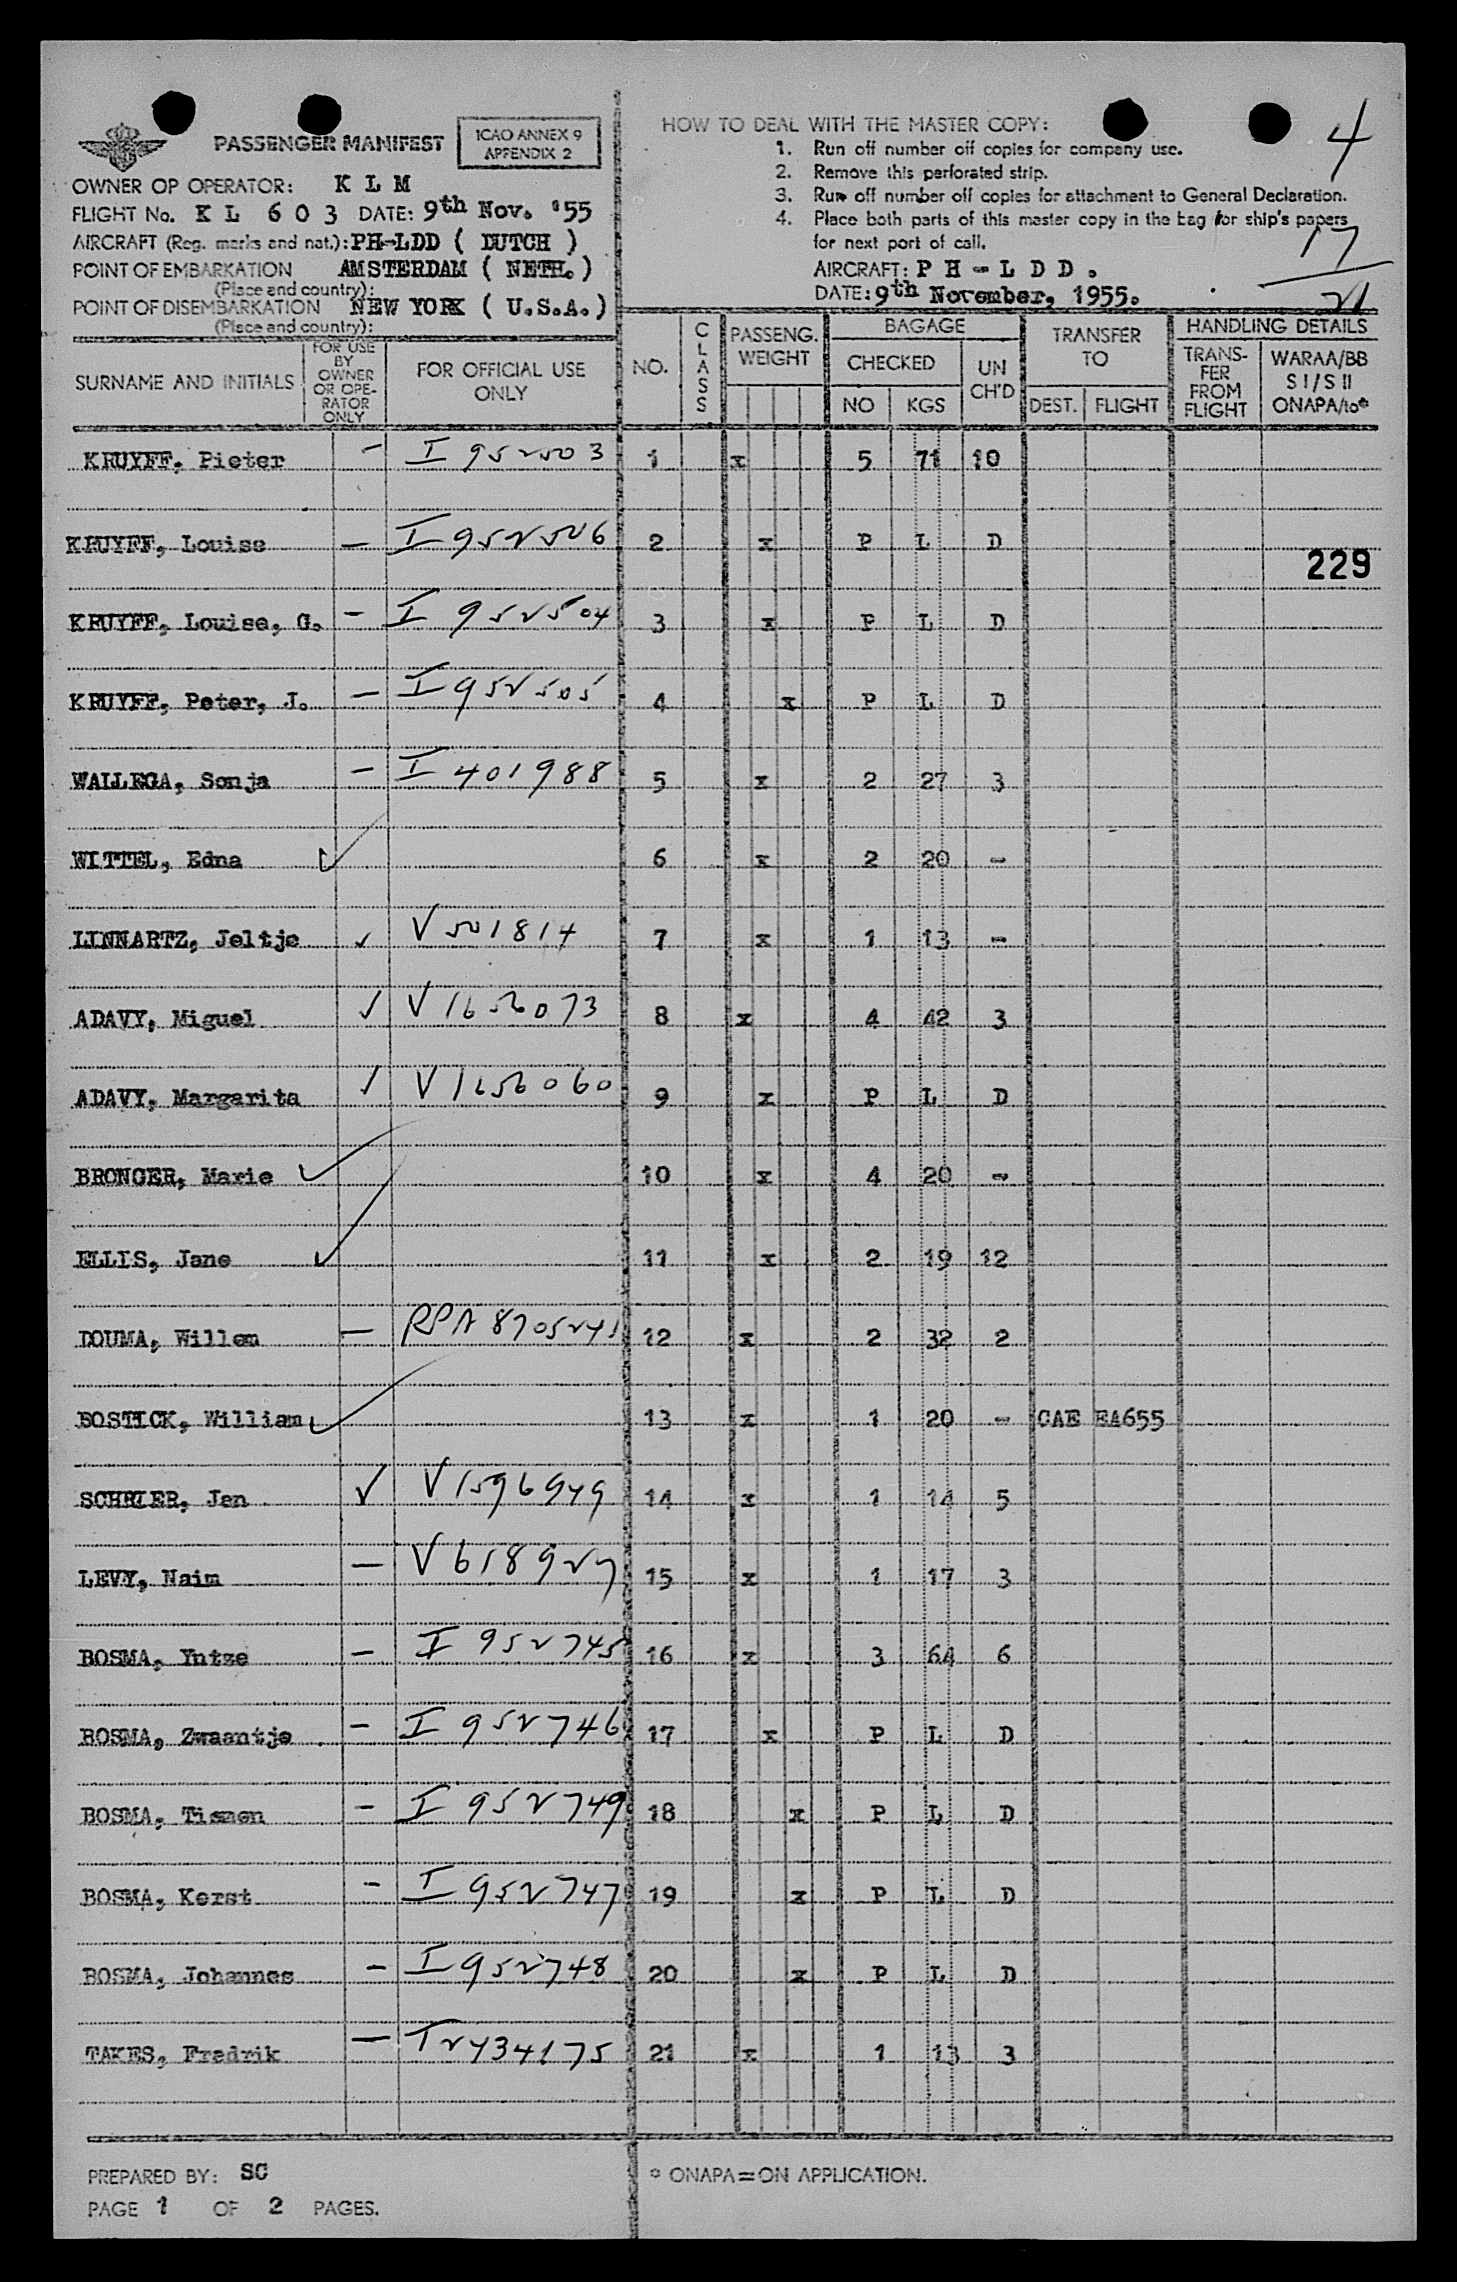 PASSENGER MANIFEST
ICAO ANNEX 9
APPENDIX 2
OWNER OP OPERATOR: K L M
FLIGHT No. K L 6 0 3 DATE: 9th Nov. '55
AIRCRAFT (Reg. marks and nat.): PH-LDD ( DUTCH )
POINT OF EMBARKATION AMSTERDAM ( NETH. )
(Place and country):
POINT OF DISEMBARKATION NEW YORK ( U.S.A. )
(Place and country):
HOW TO DEAL WITH THE MASTER COPY:
1. Run off number off copies for company use.
2. Remove this perforated strip.
3. Run off number off copies for attachment to General Declaration.
4. Place both parts of this master copy in the bag for ship's papers
for next port of call.
AIRCRAFT: P H - L D D .
DATE: 9th November, 1955.
4
17
21
SURNAME AND INITIALS
FOR USE BY OWNER OR OPE-RATOR ONLY
FOR OFFICIAL USE ONLY
NO.
CLASS
PASSENG. WEIGHT
BAGAGE
CHECKED
NO KGS
UN CH'D
TRANSFER TO
DEST. FLIGHT
HANDLING DETAILS
TRANS-FER FROM FLIGHT
WARAA/BB S I / S II ONAPA/to*
KRUYFF, Pieter – I 952503 1 x 5 71 10
KRUYFF, Louise – I 952506 2 x P L D
229
KRUYFF, Louise, G. – I 952504 3 x P L D
KRUYFF, Peter, J. – I 952505 4 x P L D
WALLEGA, Sonja – I 401988 5 x 2 27 3
WITTEL, Edna ✓ 6 x 2 20 -
LINNARTZ, Jeltje ✓ V 501814 7 x 1 13 -
ADAVY, Miguel ✓ V 1656073 8 x 4 42 3
ADAVY, Margarita ✓ V 1656060 9 x P L D
BRONGER, Marie ✓ 10 x 4 20 -
ELLIS, Jane ✓ 11 x 2 19 12
DOUMA, Willem – RPA 8705241 12 x 2 32 2
BOSTICK, William ✓ 13 x 1 20 - CAE EA655
SCHRIER, Jan ✓ V 1596949 14 x 1 14 5
LEVY, Naim – V 618927 15 x 1 17 3
BOSMA, Yntze – I 952745 16 x 3 64 6
BOSMA, Zwaantje – I 952746 17 x P L D
BOSMA, Tiemen – I 952749 18 x P L D
BOSMA, Kerst – I 952747 19 x P L D
BOSMA, Johannes – I 952748 20 x P L D
TAKES, Fredrik – 21 x 1 13 3
PREPARED BY: SC
PAGE 1 OF 2 PAGES.
* ONAPA=ON APPLICATION.